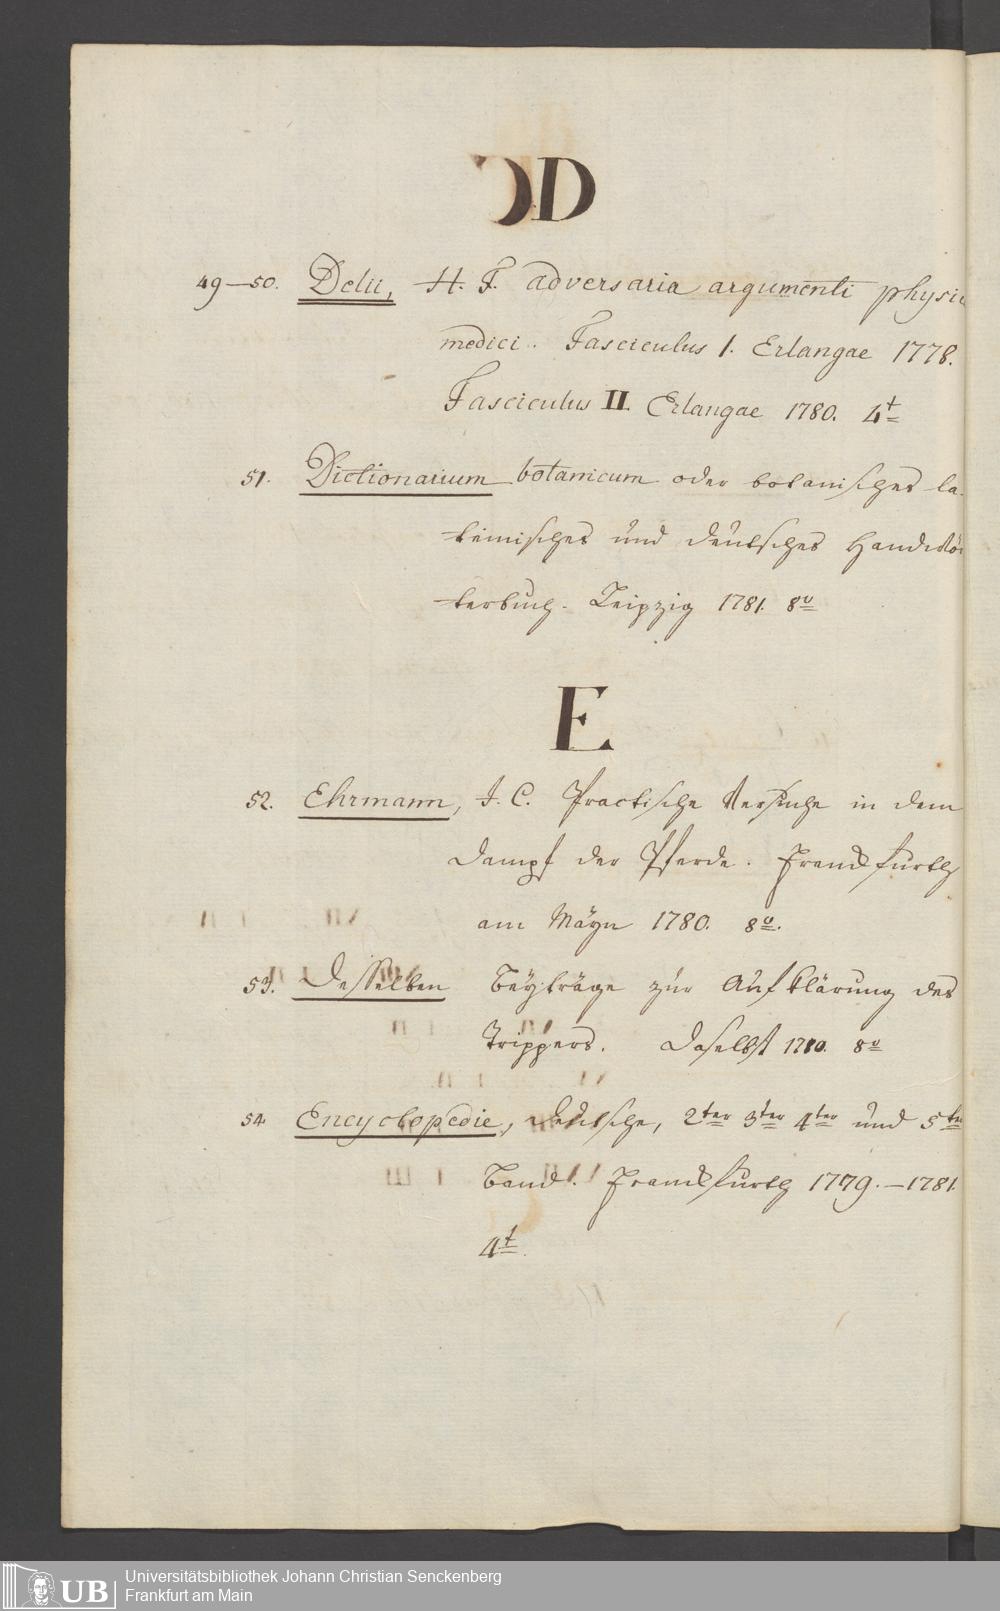 D
49—50. Delii, H. F. adversaria argumenti physic
medici. Fasciculus 1. Erlangae 1778.
Fasciculus II. Erlangae 1780. 4t
51. Dictionarium botanicum oder botanisches la-
teinisches und deutsches Handwör
terbuch. Leipzig 1781. 8o
E
52. Ehrmann, J. C. Practische Versuche in dem
Dampf der Pferde. Franckfurth
am Mäyn 1780. 8o.
53. Desselben Beÿträge zur Aufklärung des
Trippers. Daselbst 1780. 8o
54. Encyclopedie, Deutsche, 2ter 3ter 4ter und 5ter
Band. Franckfurth 1779.—1781.
4t.
UB Universitätsbibliothek Johann Christian Senckenberg
Frankfurt am Main